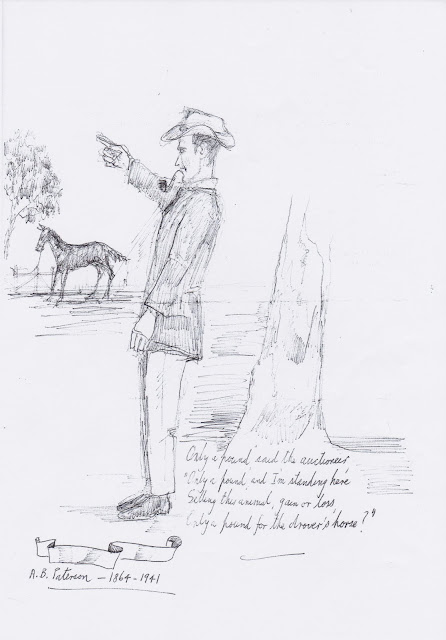 "Only a pound" said the auctioneer
"Only a pound and I'm standing here
Selling this animal, gain or loss.
Only a pound for the drover's horse?"
A.B. Paterson – 1864-1941